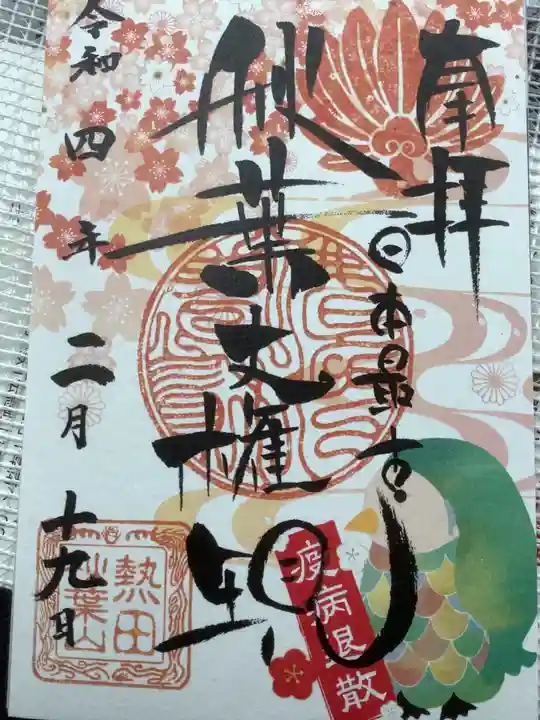 奉拝
日本最古
秋葉大権現
疫病退散
令和四年二月十九日
熱田
秋葉山